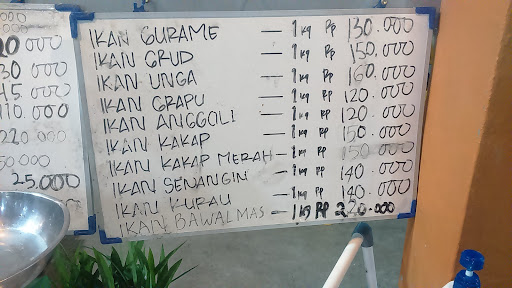 20.000
30 000
45.000
110.000
220 000
50.000
25.000
IKAN GURAME — 1 kg Rp 130.000
IKAN GRUD — 1 kg Rp 150.000
IKAN UNGA — 1 kg Rp 160.000
IKAN GRAPU — 1 kg Rp 120.000
IKAN ANGGOLI — 1 kg Rp 120.000
IKAN KAKAP — 1 kg Rp 150.000
IKAN KAKAP MERAH — 1 kg Rp 150.000
IKAN SENANGIN — 1 kg Rp 140.000
IKAN KURAU — 1 kg Rp 140.000
IKAN BAWAL MAS — 1 kg RP 220.000